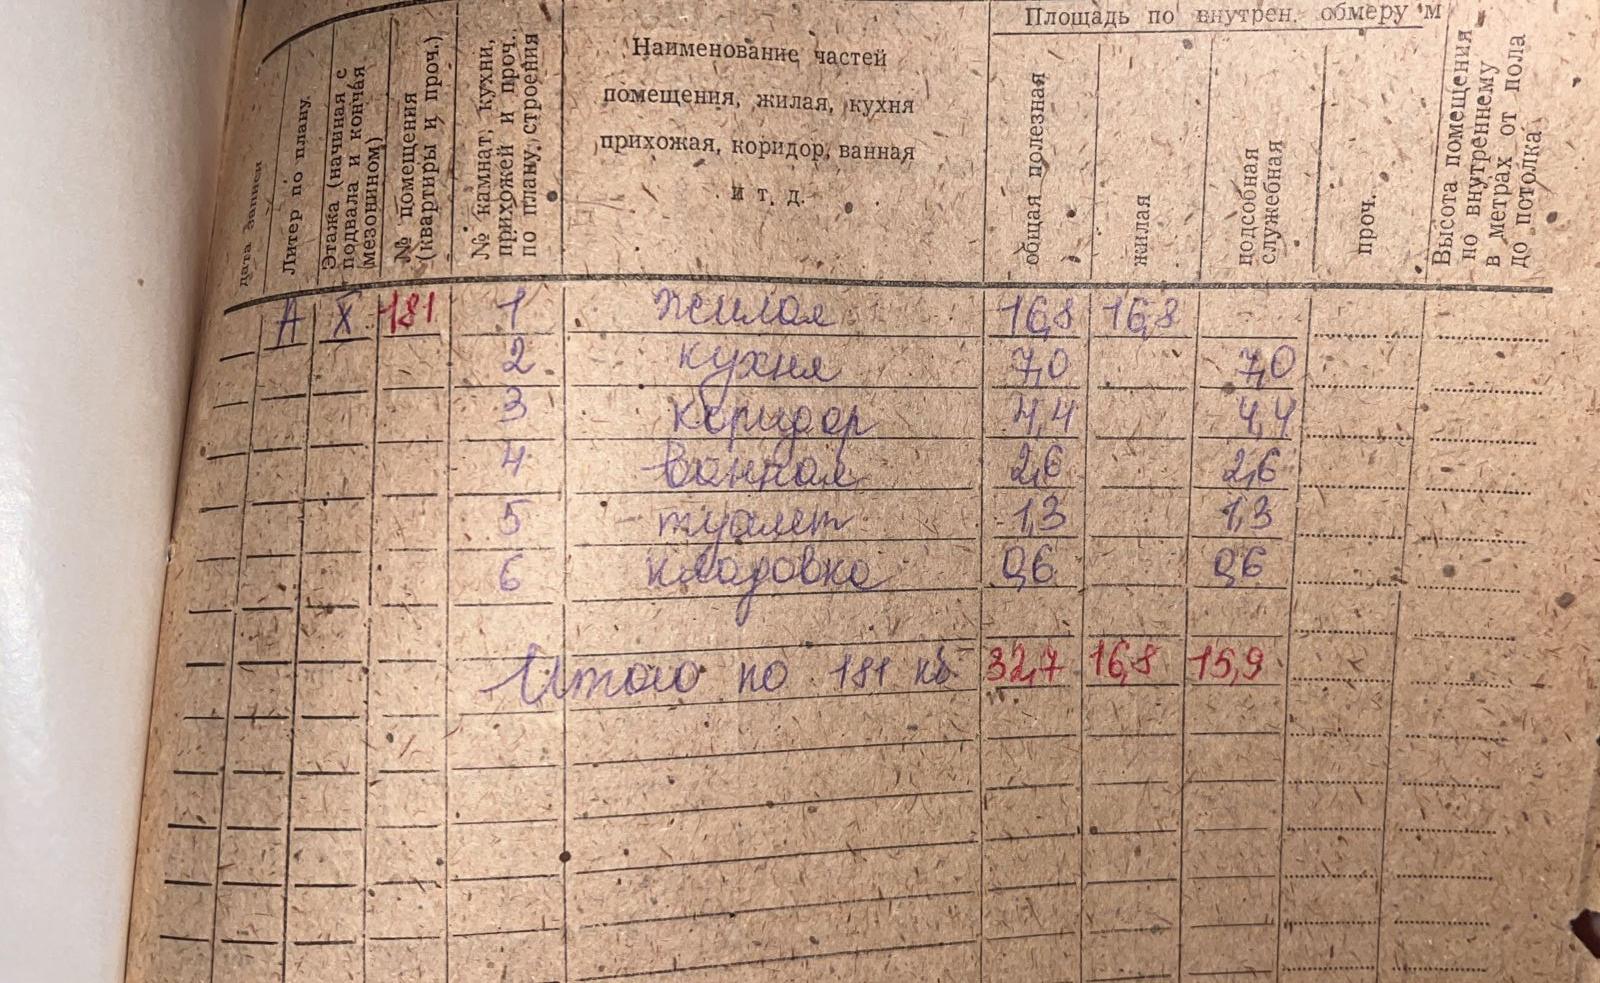 Площадь по внутрен. обмеру м
дата записи
Литер по плану.
Этажа (начиная с
подвала и кончая
мезонином)
№ помещения
(квартиры и проч.)
№ камнат, кухни,
прихожей и проч.
по плану, строения
Наименование частей
помещения, жилая, кухня
прихожая, коридор, ванная
и т. д.
общая полезная
жилая
подсобная
служебная
проч.
Высота помещения
по внутреннему
в метрах от пола
до потолка
А X 181 1 жилая 16,8 16,8
2 кухня 7,0 7,0
3 коридор 4,4 4,4
4 ванная 2,6 2,6
5 туалет 1,3 1,3
6 кладовка 0,6 0,6
Итого по 181 кв. 32,7 16,8 15,9